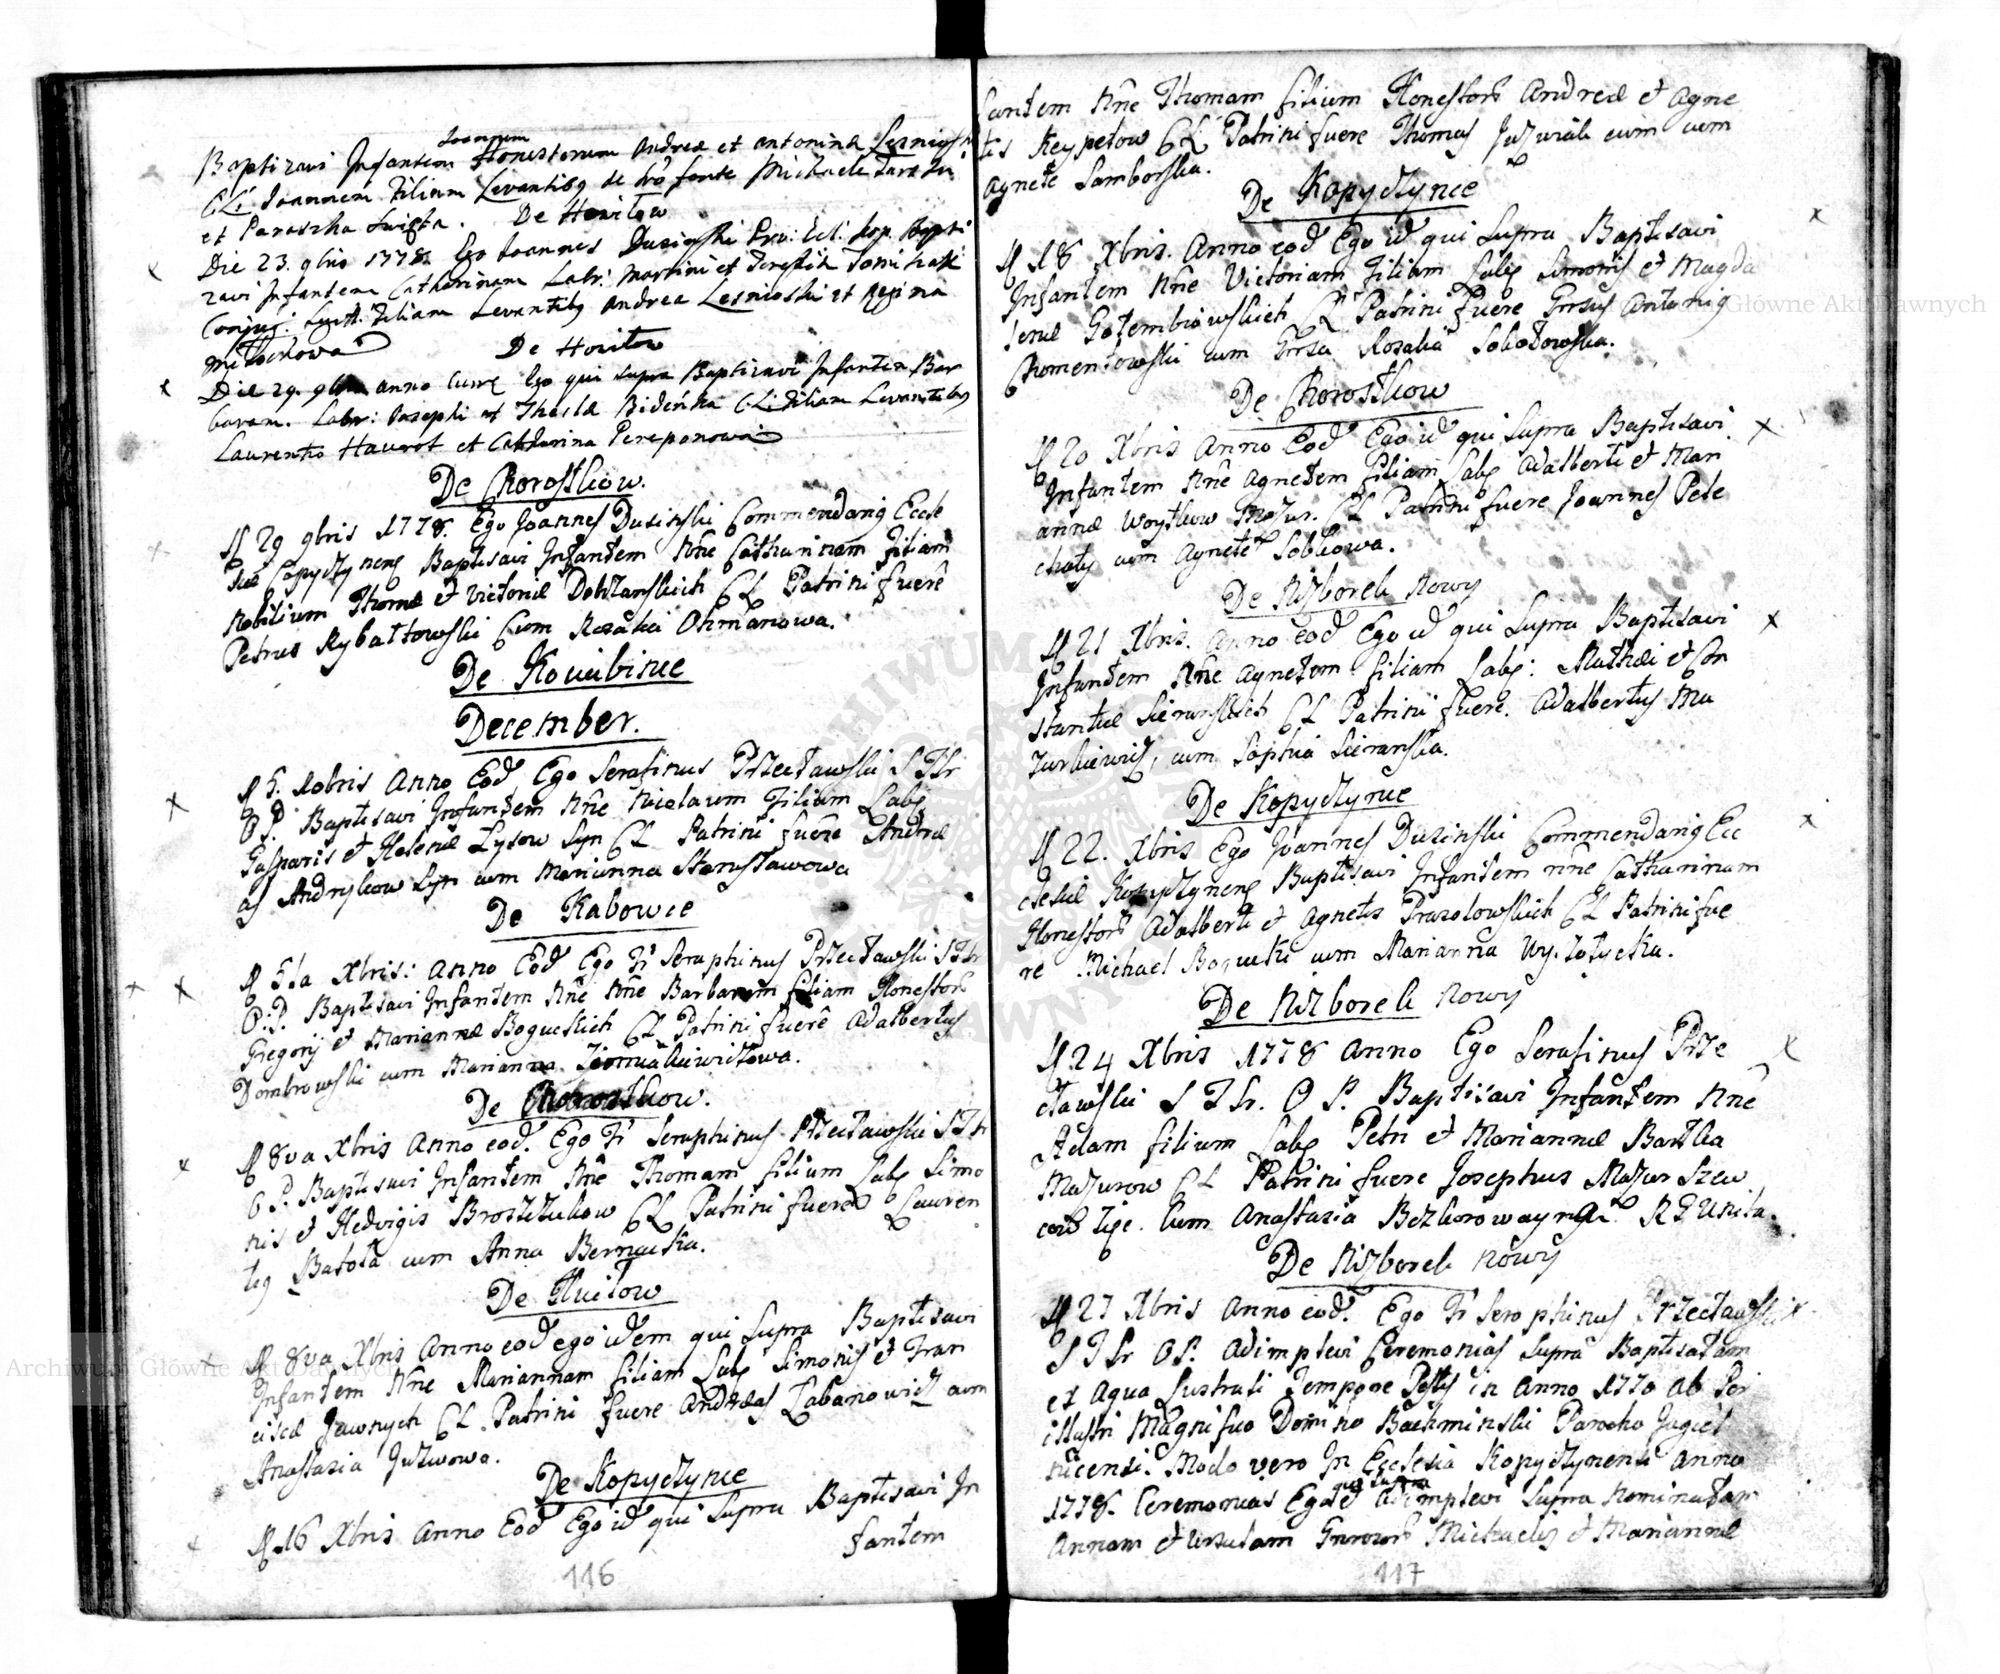 Joannem
Baptizavi Infantem Honestorum Andreæ et Antoninæ
C:L: Joannem Filium Levantibq de fonte Michaele
et Parascha De Howilow
Die 23. 9bris 1778. Ego Joannes Duzinski Eccl: Kop. Bapti
zavi Infantem Catharinam Labr: Martini et Teresiæ
Conjug: Legit. Filiam Levantibq Andrea Lesnioski et Regina
De Howilow
Die 29. 9bris anno curr Ego qui supra Baptizavi Infantem Bar
baram. Labr: Josephi et Theclæ C:L: Filiam Levantibq
Laurentio Hawrot et Catharina Pereponowa
De Chorostkow.
A 29 9bris 1778. Ego Joannes Duzinski Commendariq Eccle
siæ Copyczyneng Baptisavi Infantem Nne Catharinam Filiam
Nobilium Thomæ et Victoriæ CL Patrini fuere
Petrus Rybałtowski Cum Rosalia Ohmanowa.
De
December.
A 5. Xbris Anno Eod Ego Serafinus Przecławski S T Lr
O P. Baptisavi Infantem Nne Nicolaum Filium Labq
Gasparis et Helenæ Lysow Syn CL Patrini fuere Andre
as Andrykow Syn cum Marianna Stanisławowa
De Kabowce
A 5ta Xbris: Anno Eod Ego Fr Seraphinus Przecławski S T Lr
O:P. Baptisavi Infantem Nne Nne Barbaram filiam Honestorb
Gregorij et Mariannæ Boguckich CL Patrini fuere Adalbertus
Dombrowski cum Marianna
De Chorostkow.
A 8va Xbris Anno eod. Ego Fr Seraphinus Przecławski S T Lr
O P. Baptisavi Infantem Nne Thomam filium Labq Simo
nis et Hedvigis CL Patrini fuere Lauren
tiq Batota cum Anna Bernacka.
De Hwilow
A 8va Xbris Anno eod ego idem qui Supra Baptisavi
Infantem Nne Mariannam filiam Labq Simonis et Fran
ciscæ Jawnych CL. Patrini fuere Andreas Łabanowicz cum
Anastazia
De Kopyczynce
A 16 Xbris Anno Eod Ego id qui Supra Baptisavi In
fantem
116
fantem Nne Thomam filium Honestorb Andreæ et Agne
tis Keypetow CL Patrini fuere Thomas cum
Agnete Samborska.
De Kopyczynce
A 18 Xbris. Anno eod Ego id qui Supra Baptisavi
Infantem Nne Victoriam Filiam Labq Simonis et Magda
lenæ Gołembiowskich CL Patrini fuere Antoniq
Chomentowski cum Rosalia Sobotowska.
De Chorostkow
A 20 Xbris Anno Eod Ego id qui Supra Baptisavi
Infantem Nne Agnetem filiam Labq Adalberti et Mari
annæ Woytkow Mazur. CL Patrini fuere Joannes Pete
chaty cum Agnete Sobkowa.
De Niżborek Nowy
A 21 Xbris. Anno eod Ego id qui Supra Baptisavi
Infantem Nne Agnetem filiam Labq: Mathæi et Con
stantiæ CL Patrini fuere. Adalbertus Ma
zurkiewicz, cum Sophia
De Kopyczynce
A 22. Xbris Ego Joannes Duzinski Commendariq Ecc
clesiæ Kopyczyneng Baptisavi Infantem nne Catharinam
Honestorb Adalberti et Agnetis Prazolowskich CL Patrini fue
re Michael Bogucki cum Marianna
De Niżborek Nowy
A 24 Xbris 1778 Anno Ego Serafinus Prze
cławski S T Lr. O P. Baptisavi Infantem Nne
Adam filium Labq Petri et Mariannæ Bartka
Mazurow CL Patrini fuere Josephus Mazur Szew
Cum Anastazia Unita.
De Niżborek Nowy
A 27 Xbris Anno eod. Ego Fr Seraphinus Przecławski
S T Lr OP. Adimplevi Ceremonias Supra Baptisatam
ex Aqua Lustrati Tempore Pestis in Anno 1770 Ab Per
illustri Magnifico Domino Bachminski Parocho Jagiel
nicensi. Modo vero In Ecclesia Kopyczynensi Anno
qui Supra
1778. Ceremonias Ego id Adimplevi Supra Nominatam
Annam et Ursulam Michaelis et Mariannæ
117
Archiwum Główne Akt Dawnych
Archiwum Główne Akt Dawnych